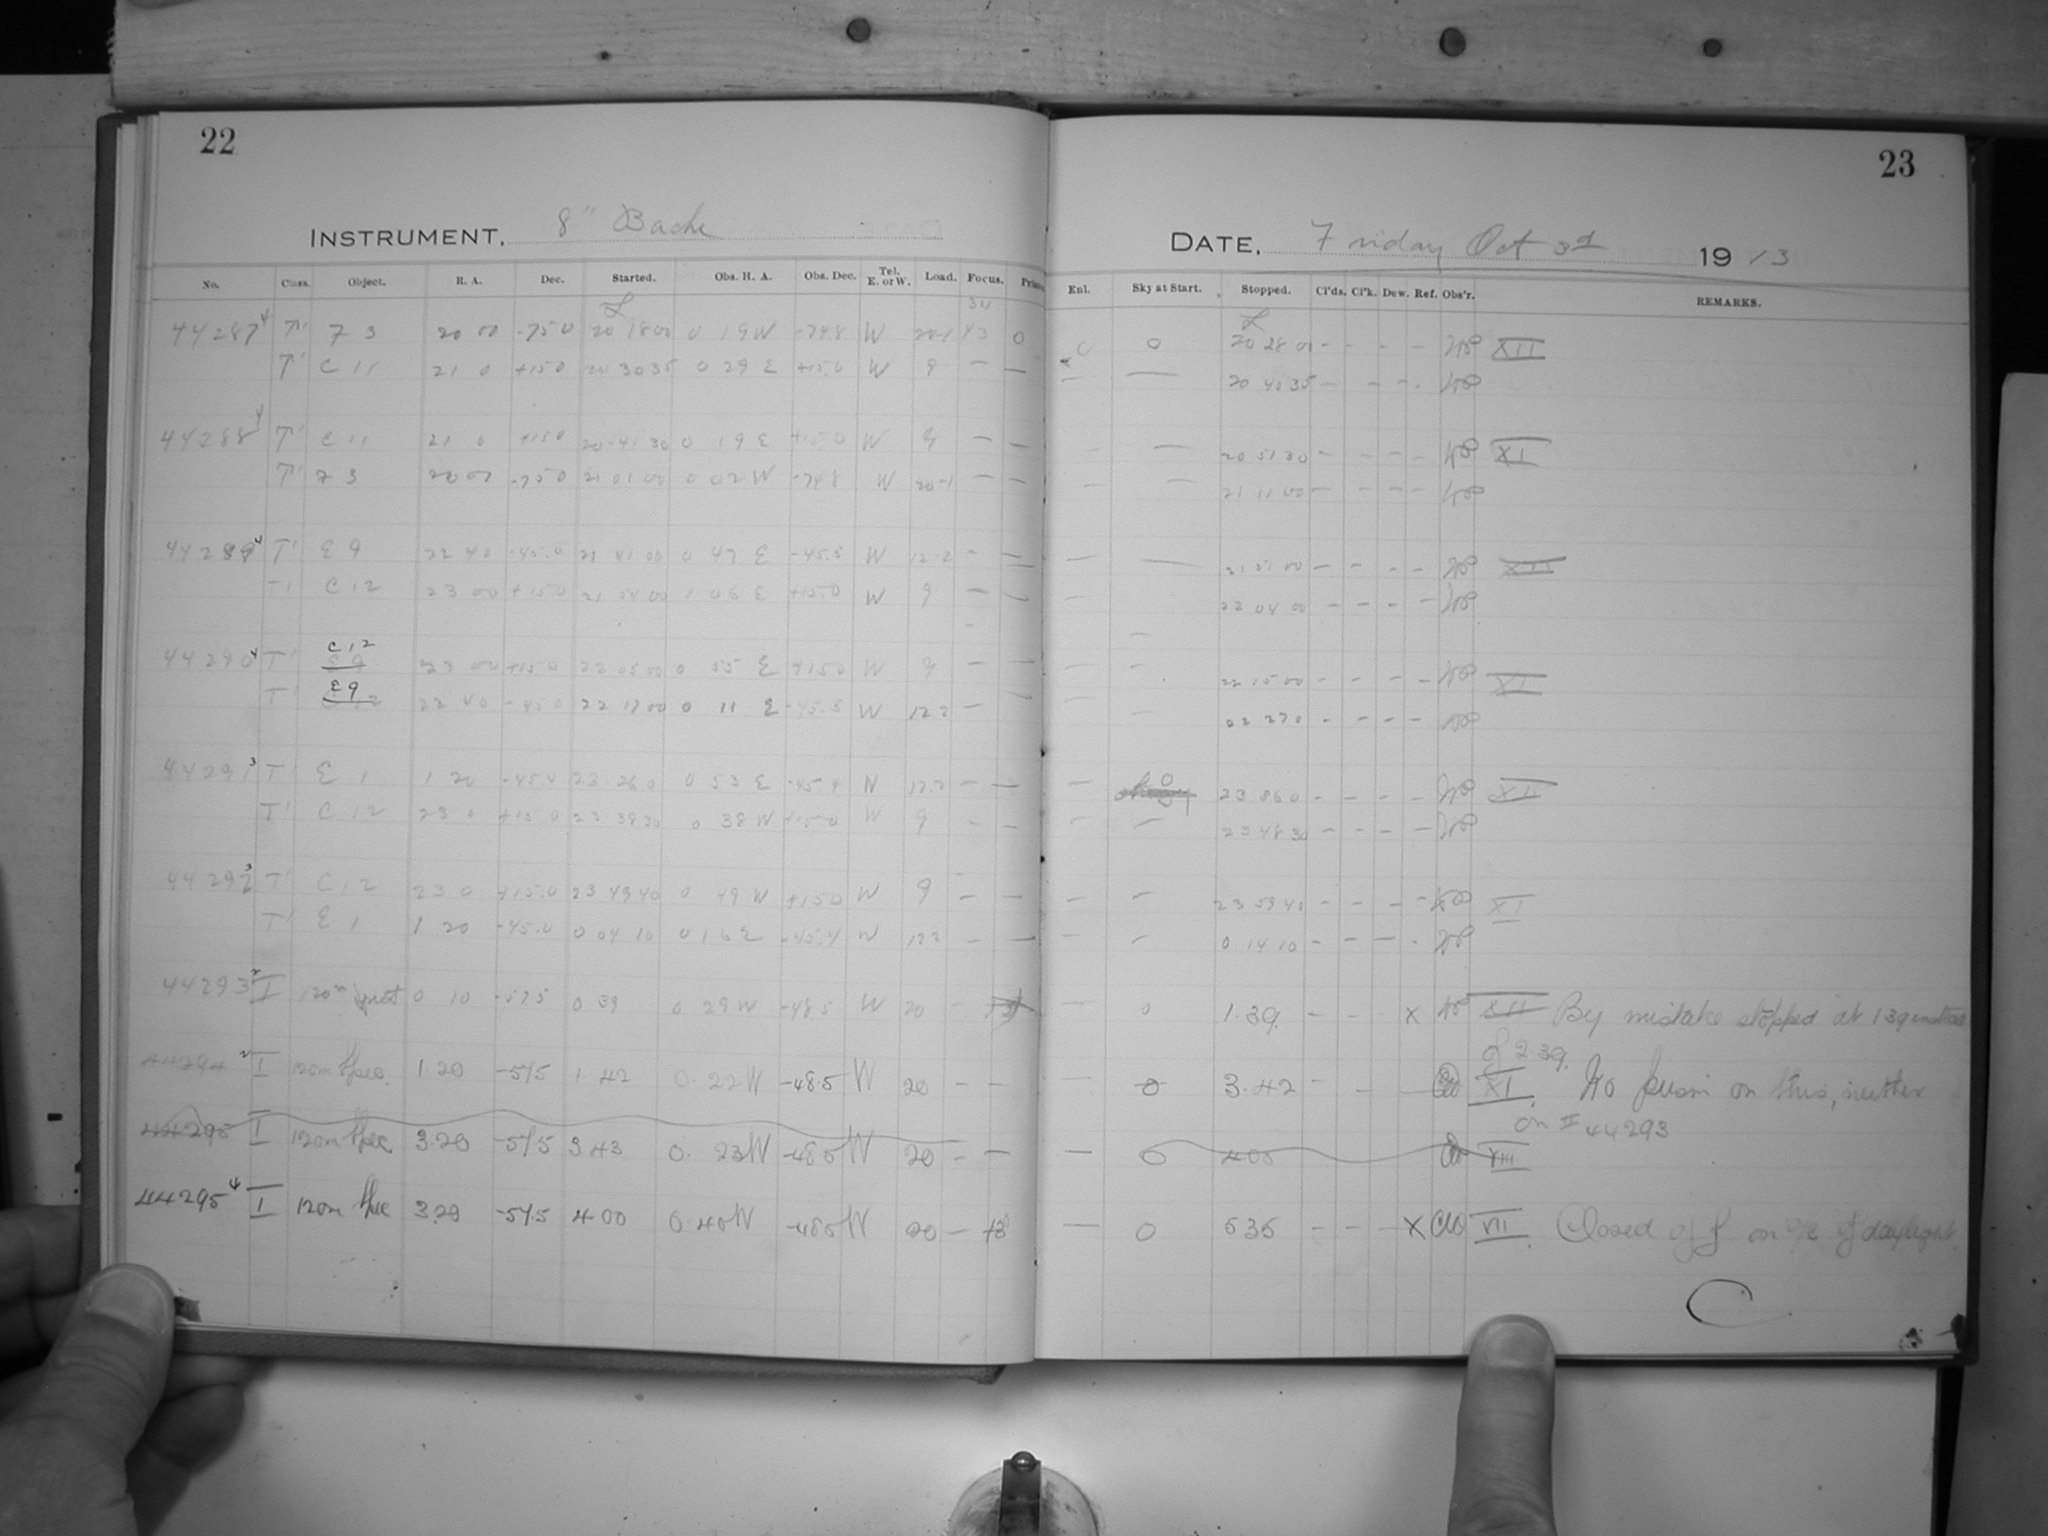 22
23
INSTRUMENT, 8" Bache
DATE, Friday Oct 3d 1913
No. Class. Object. R. A. Dec. Started. Obs. H. A. Obs. Dec. Tel. E. or W. Load. Focus. Prism
Enl. Sky at Start. Stopped. Cl'ds. Cl'k. Dew. Ref. Obs'r. REMARKS.
44287 4 T' 73 20 00 -75 0 20 18 00 0 19 W -74.8 W 20-1 43 0 0 20 28 00 - - - - XII
T' C 11 21 0 +15 0 20 30 35 0 29 E +15.0 W 9 - - - - 20 40 35 - - - -
44288 4 T' C 11 21 0 +15 0 20 41 30 0 19 E +15.0 W 9 - - - - 20 51 30 - - - - XI
T' 73 20 00 -75 0 21 01 00 0 02 W -74.8 W 20-1 - - - - 21 11 00 - - - -
44289 4 T' E 9 22 40 -45.0 21 41 00 0 47 E -45.5 W 12.2 - - - - 21 51 00 - - - - XII
T' C 12 23 00 +15.0 21 54 00 1 06 E +15.0 W 9 - - - - 22 04 00 - - - -
44290 4 T' C 12 23 00 +15.0 22 05 00 0 55 E +15.0 W 9 - - - - 22 15 00 - - - - XI
T' E 9 22 40 -45.0 22 17 00 0 11 E -45.5 W 12.2 - - - - 22 27 0 - - - -
44291 3 T' E 1 1 20 -45.0 23 26 0 0 53 E -45.4 W 12.2 - - - 0 23 36 0 - - - - XII
T' C 12 23 0 +15.0 23 38 30 0 38 W +15.0 W 9 - - - - 23 48 30 - - - -
44292 3 T' C 12 23 0 +15.0 23 49 40 0 49 W +15.0 W 9 - - - - 23 59 40 - - - - XI
T' E 1 1 20 -45.0 0 04 10 0 16 E -45.4 W 12.2 - - - - 0 14 10 - - - -
44293 2 I 120m 0 10 -57.5 0 39 0 29 W -48.5 W 20 - - 0 1.39 - - - X XII By mistake stopped at 1 39 instead
of 2.39.
44294 2 I 120m Spec. 1.20 -57.5 1.42 0.22 W -48.5 W 20 - - - 0 3.42 - - - XI. No prism on this, neither
on I 44293
44295 I 120m Spec 3.20 -57.5 3.43 0. 23 W -48.5 W 20 - - - 0 4 00 VIII
44295 4 I 120m Spec 3.20 -57.5 4 00 0.40 W -48.5 W 20 - - 0 5 35 - - - X VII Closed off on a/c of daylight.
C